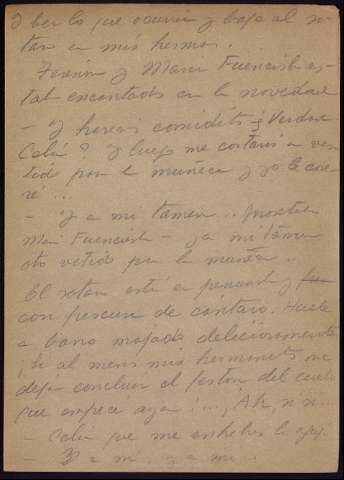 y ver lo que ocurria y bajo al so-
tano a mis hermos.
Fermin y Maria Fuencisla es-
tan encantados con la novedad
- Y haras comiditas ¿ Verdad
Celia? Y luego me cortaras un ves-
tido para la muñeca y yo lo cose-
ré ...
- Y a mi tamien.. 
Mari Fuencisla - y a mi tamien
oto vetido para la muñeca..
El sotano está en penumbra y
con frescura de cántaro. Huele
a barro mojado deliciosamente
¡Si al menos mis hermanitos me
dejan concluir el feston del cuello
que empecé ayer....¡ Ah, si si...
- Celia que me enhebres la aguja.
- Y a mi, y a mi..